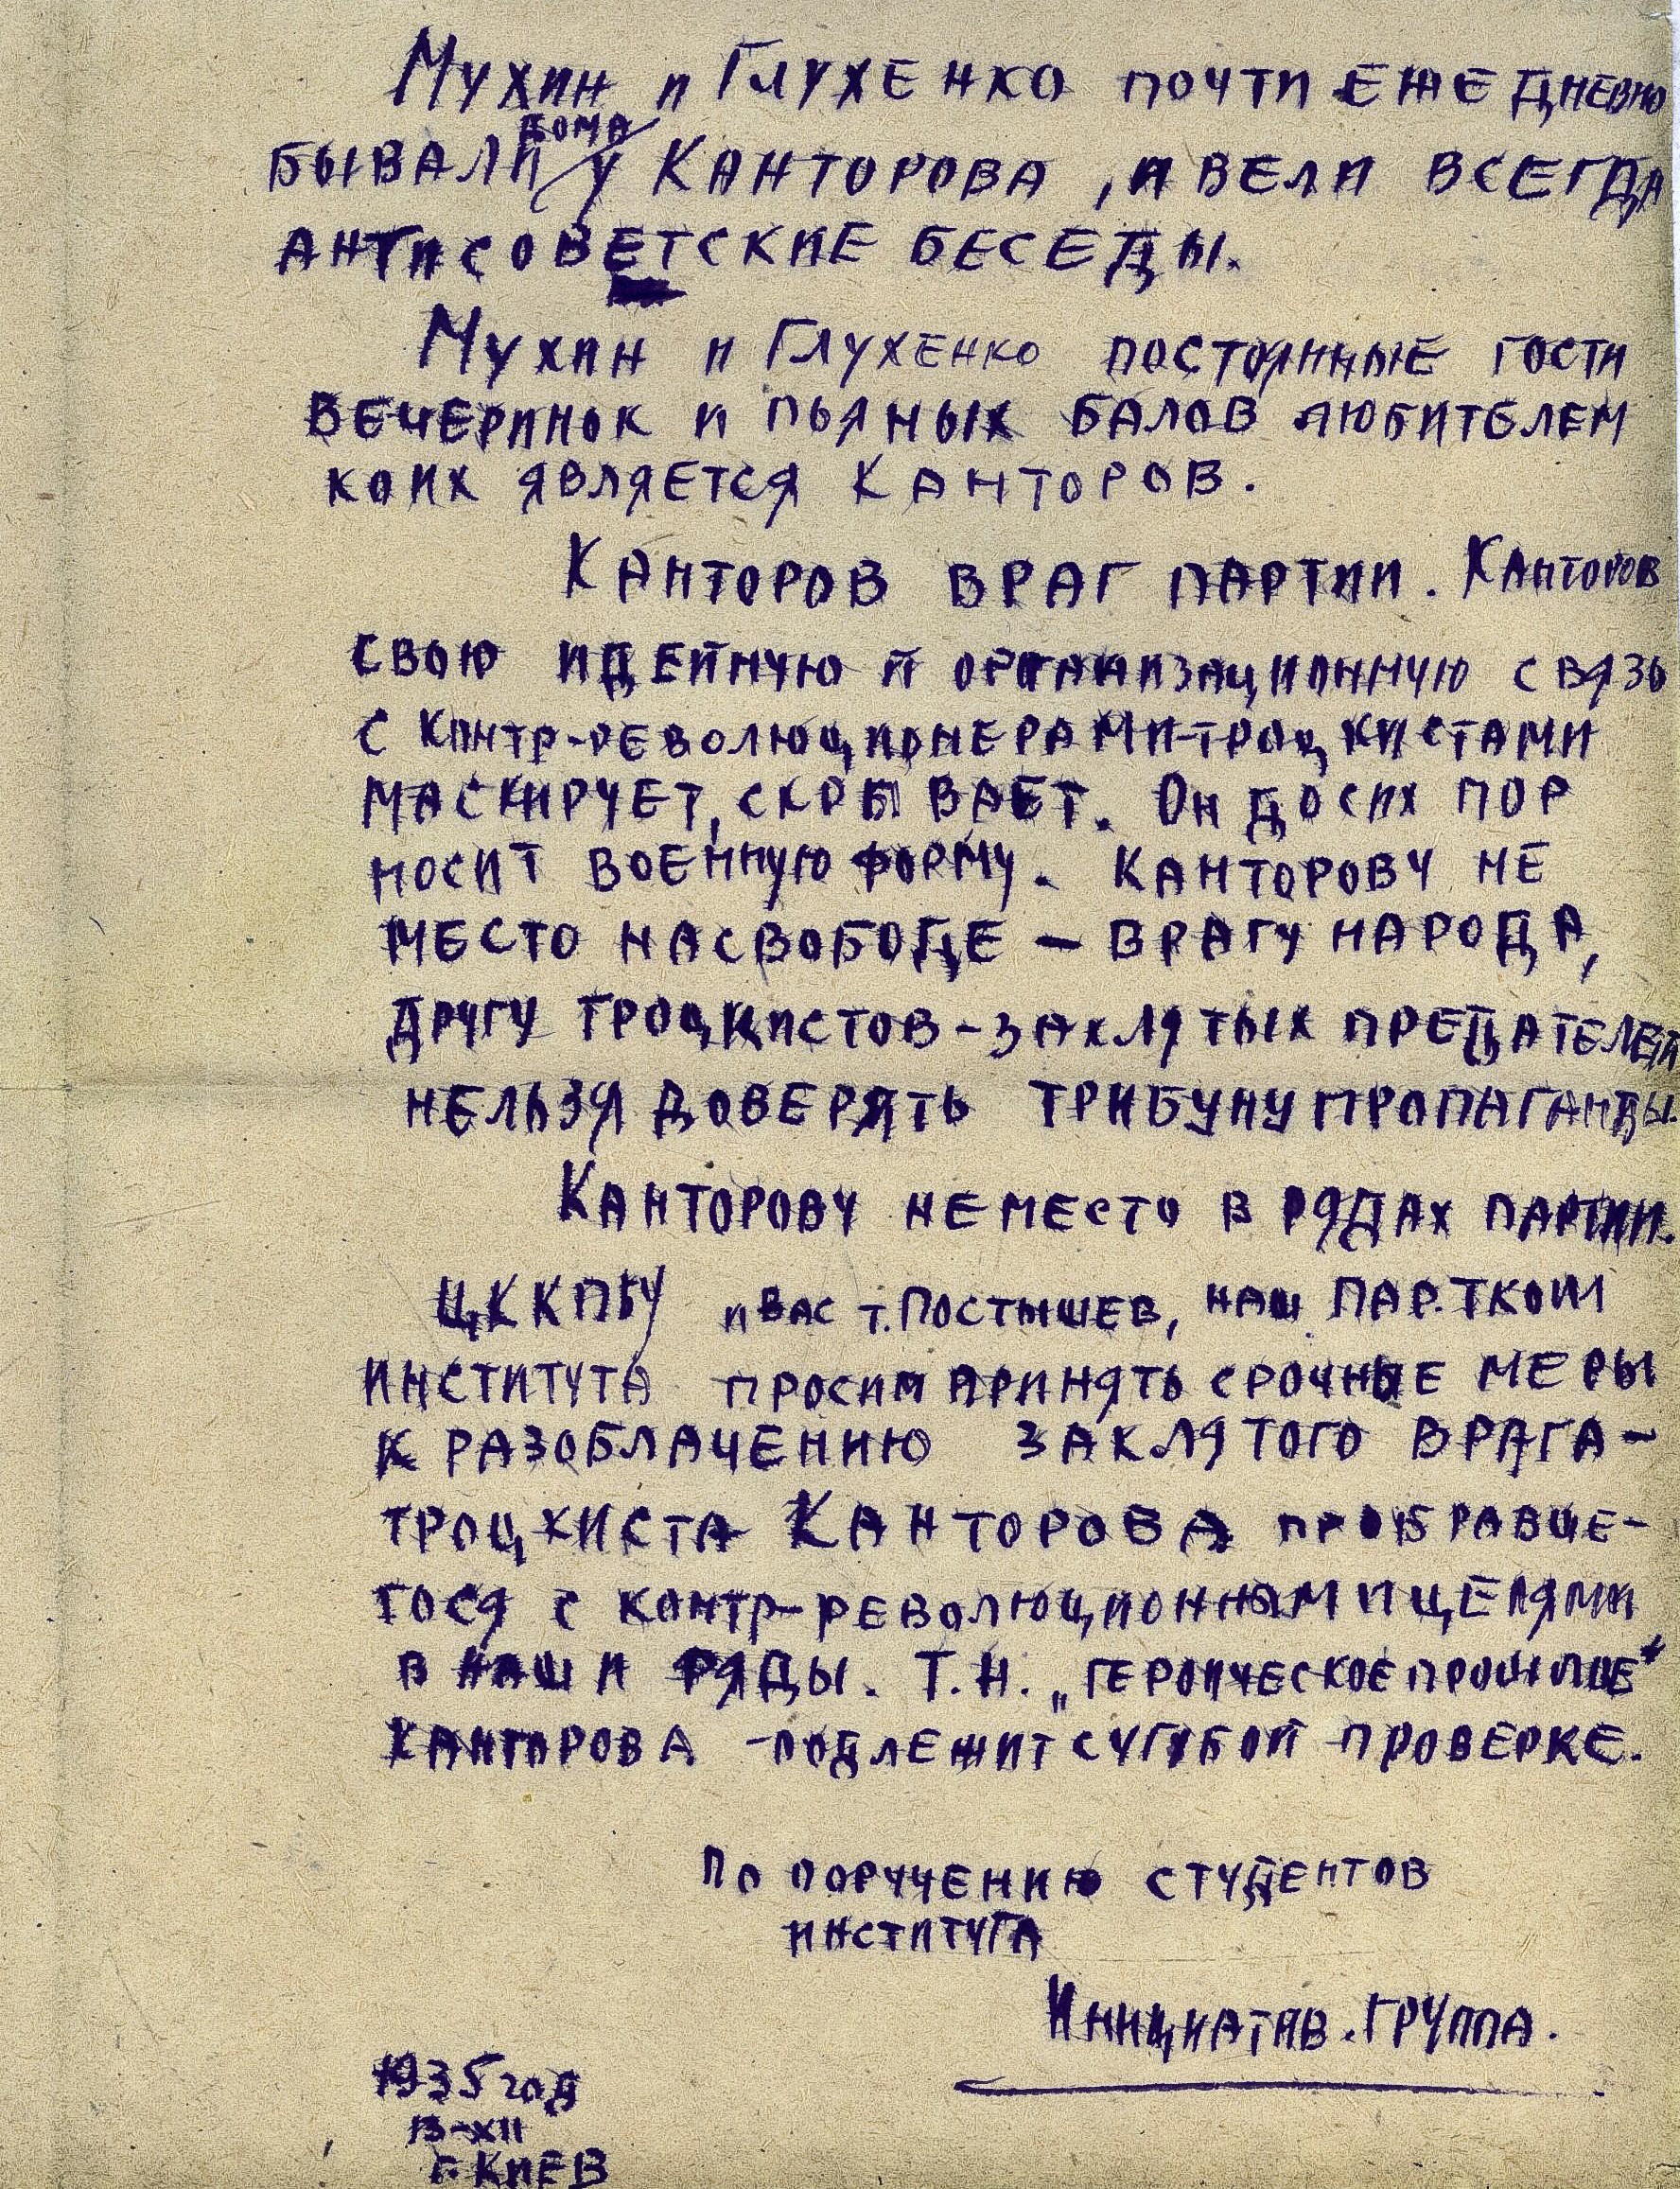 Мухин и Глухенко почти ежедневно
дома
бывали у Канторова, и вели всегда
антисоветские беседы.
Мухин и Глухенко постоянные гости
вечеринок и пьяных балов любителем
коих является Канторов.
Канторов враг партии. Канторов
свою идейную и организационную связь
с контр-революционерами-троцкистами
маскирует, скрывает. Он досих пор
носит военную форму. Канторову не
место насвободе – врагу народа,
другу троцкистов – заклятых предателей
нельзя доверять трибуну пропаганды.
Канторову не место в рядах партии.
ЦК КПбУ и Вас т. Постышев, наш Пар.тком
института просим принять срочные меры
к разоблачению заклятого врага –
троцкиста Канторова пробравше-
гося с контр-революционными целями
в наши ряды. Т.н. „героическое прошлое"
Канторова – подлежит сугубой проверке.
По поручению студентов
института
Инициатив. группа.
1935 год
13-XII
г. Киев